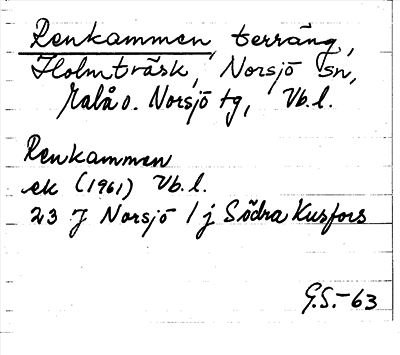 Renkammen, terräng,
Holmträsk, Norsjö sn,
Malå o. Norsjö tg, Vb.l.
Renkammen
ek (1961) Vb.l.
23 J Norsjö 1 j Södra Kusfors
G.S.-63